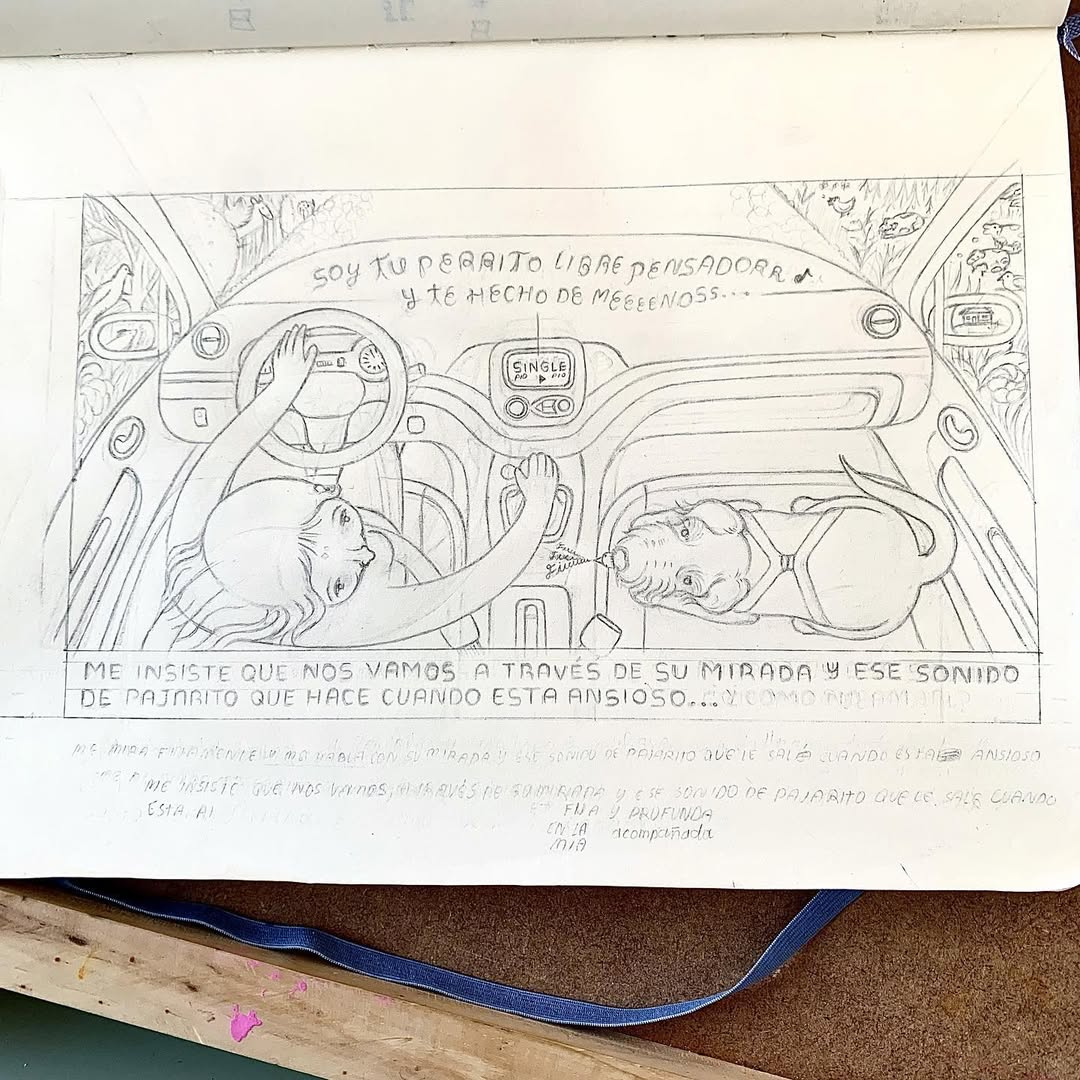 SOY TU PERRITO LIBRE PENSADORR ♪
Y TE HECHO DE MEEEENOSS...
SINGLE
PIO PIO
ME INSISTE QUE NOS VAMOS A TRAVÉS DE SU MIRADA Y ESE SONIDO
DE PAJARITO QUE HACE CUANDO ESTA ANSIOSO...
ME MIRA FIJAMENTE Y ME HABLA CON SU MIRADA Y ESE SONIDO DE PAJARITO QUE LE SALE CUANDO ESTA ANSIOSO
ME INSISTE QUE NOS VAMOS, A TRAVÉS DE SU MIRADA Y ESE SONIDO DE PAJARITO QUE LE SALE CUANDO
ESTA
FIJA Y PROFUNDA
EN LA acompañada
MIA